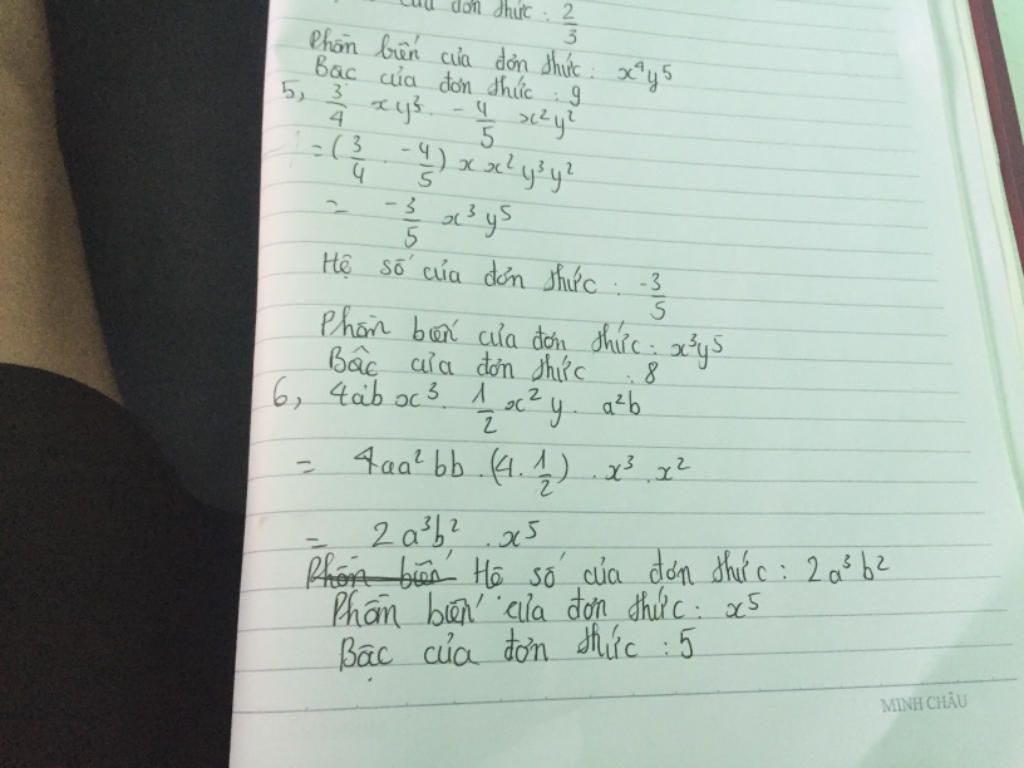 của đơn thức : 2/3
Phần biến của đơn thức : x⁴y⁵
Bậc của đơn thức : 9
5, 3/4 xy³ . -4/5 x²y²
= (3/4 . -4/5) x x² y³y²
= -3/5 x³y⁵
Hệ số của đơn thức : -3/5
Phần biến của đơn thức : x³y⁵
Bậc của đơn thức : 8
6, 4ab x³ . 1/2 x² y . a²b
= 4aa²bb . (4 . 1/2) . x³ . x²
= 2a³b² . x⁵
Phần biến Hệ số của đơn thức : 2a³b²
Phần biến của đơn thức : x⁵
Bậc của đơn thức : 5
MINH CHÂU